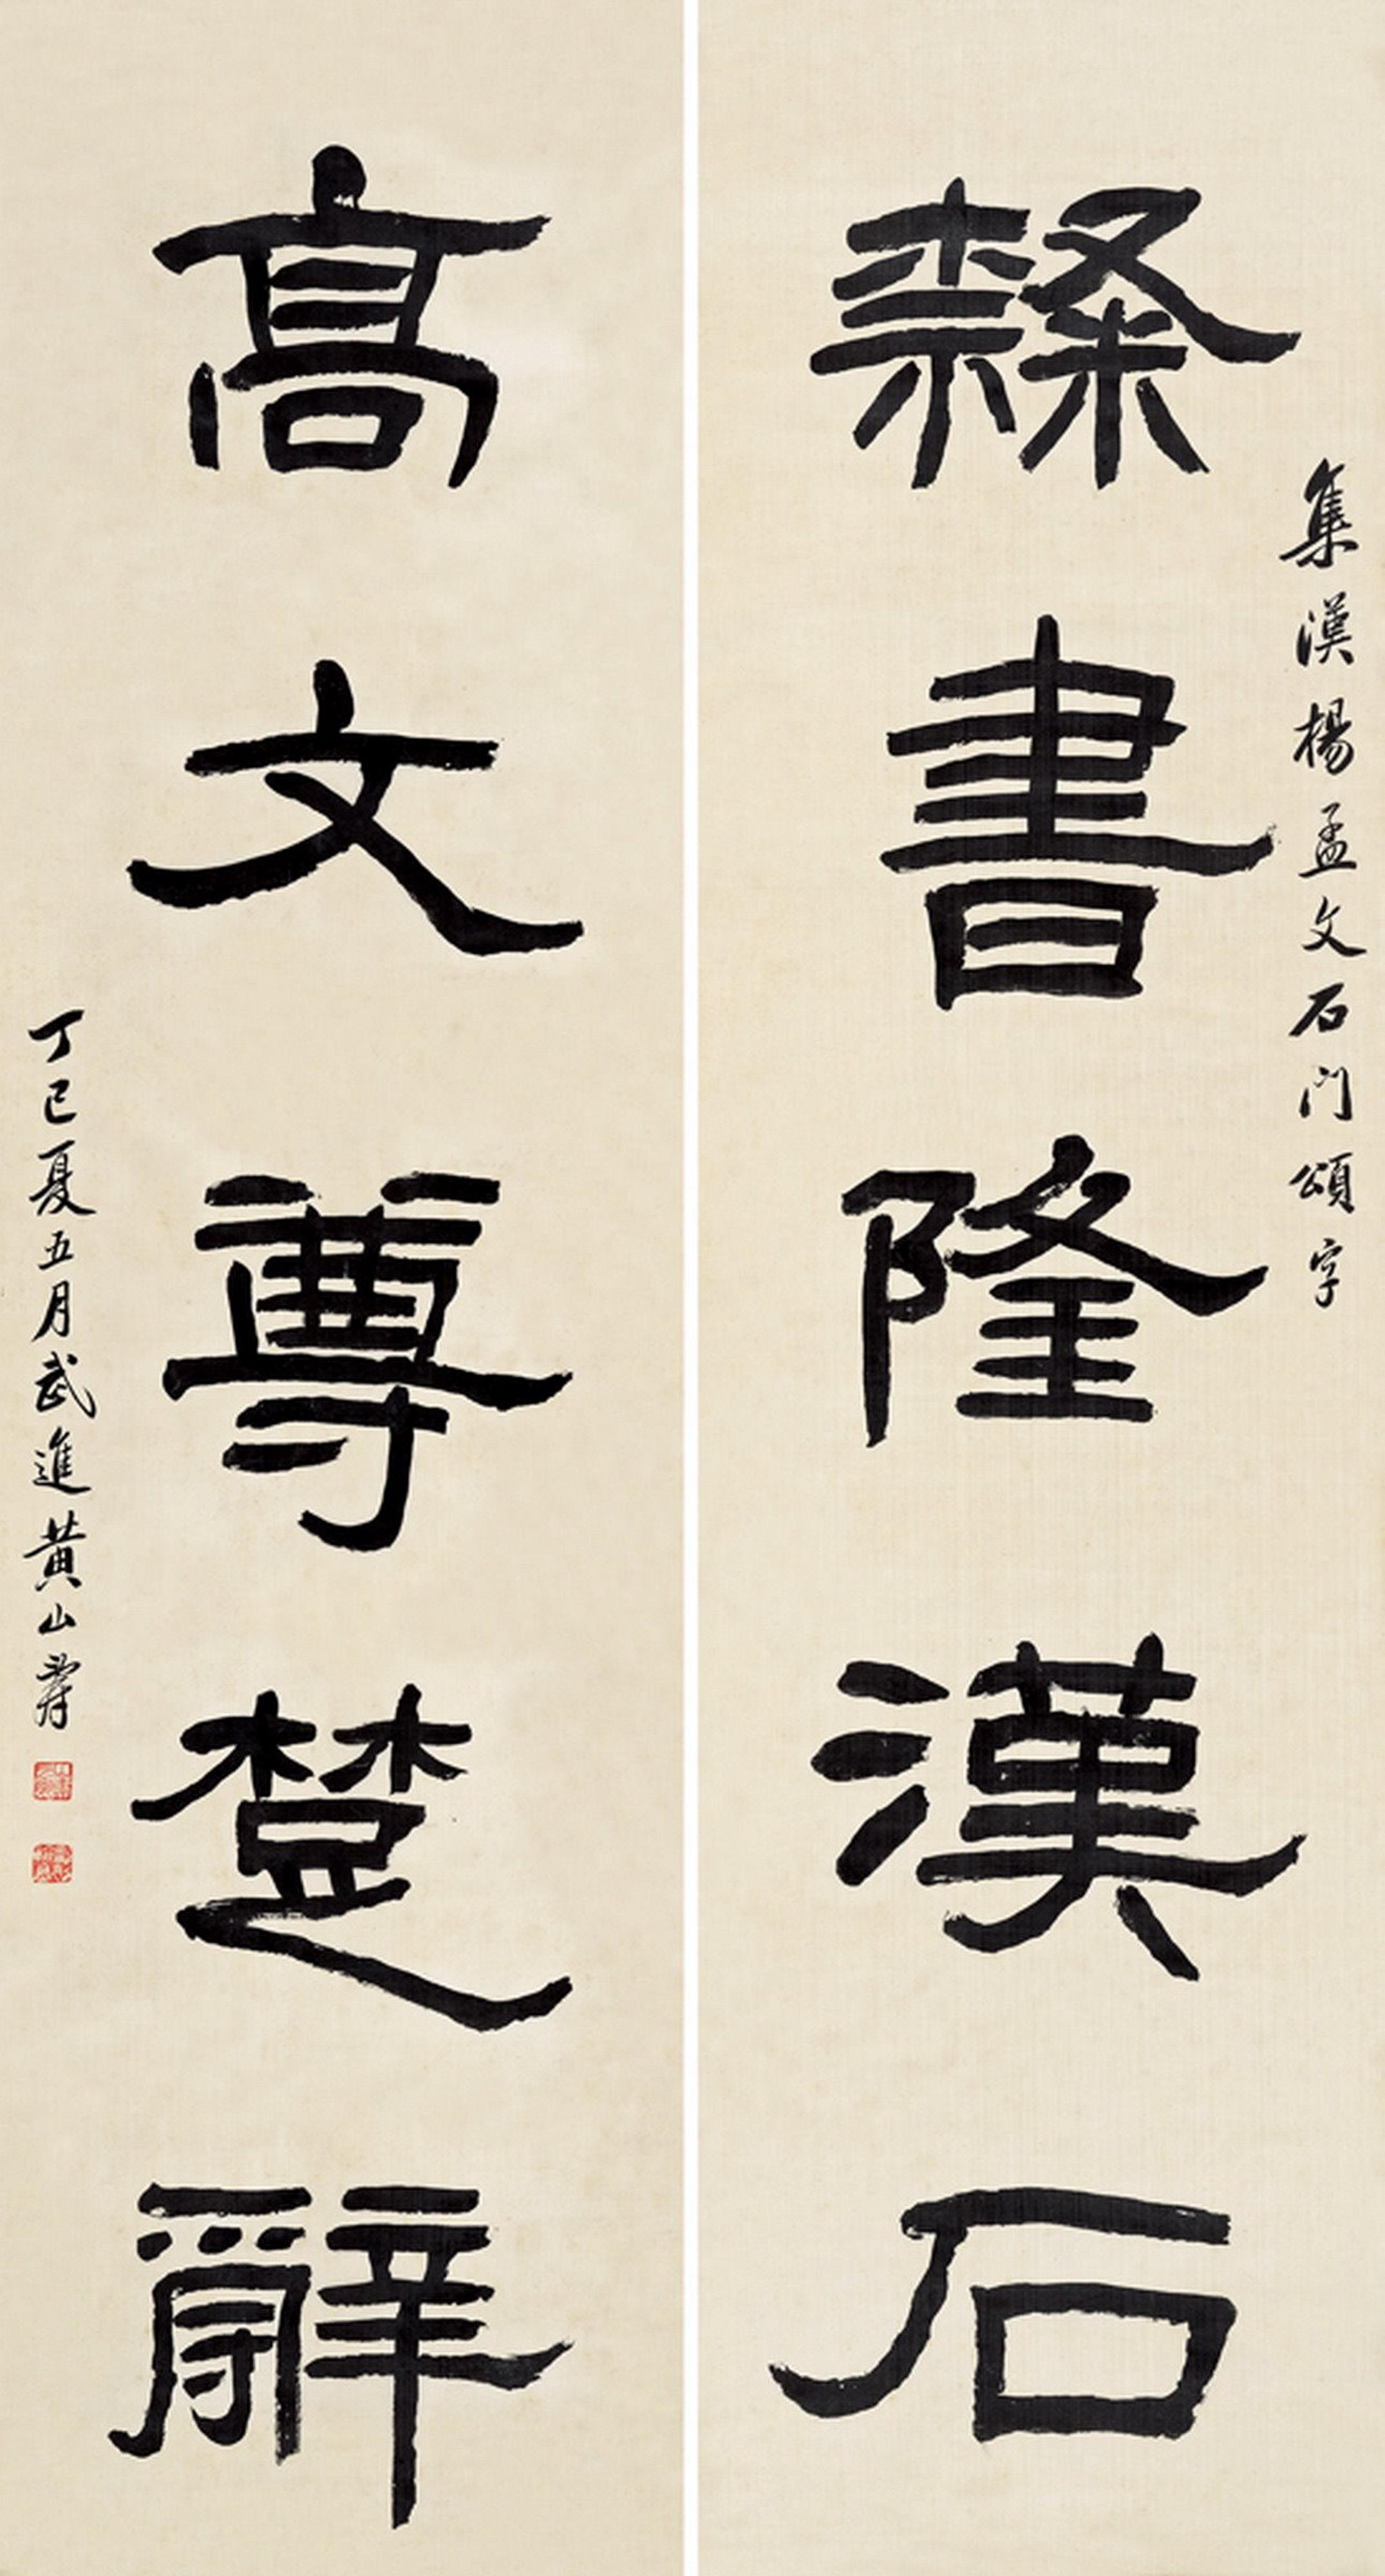 集漢楊孟文石門頌字
隸書隆漢石
高文尊楚辭
丁巳夏五月武進黃山壽